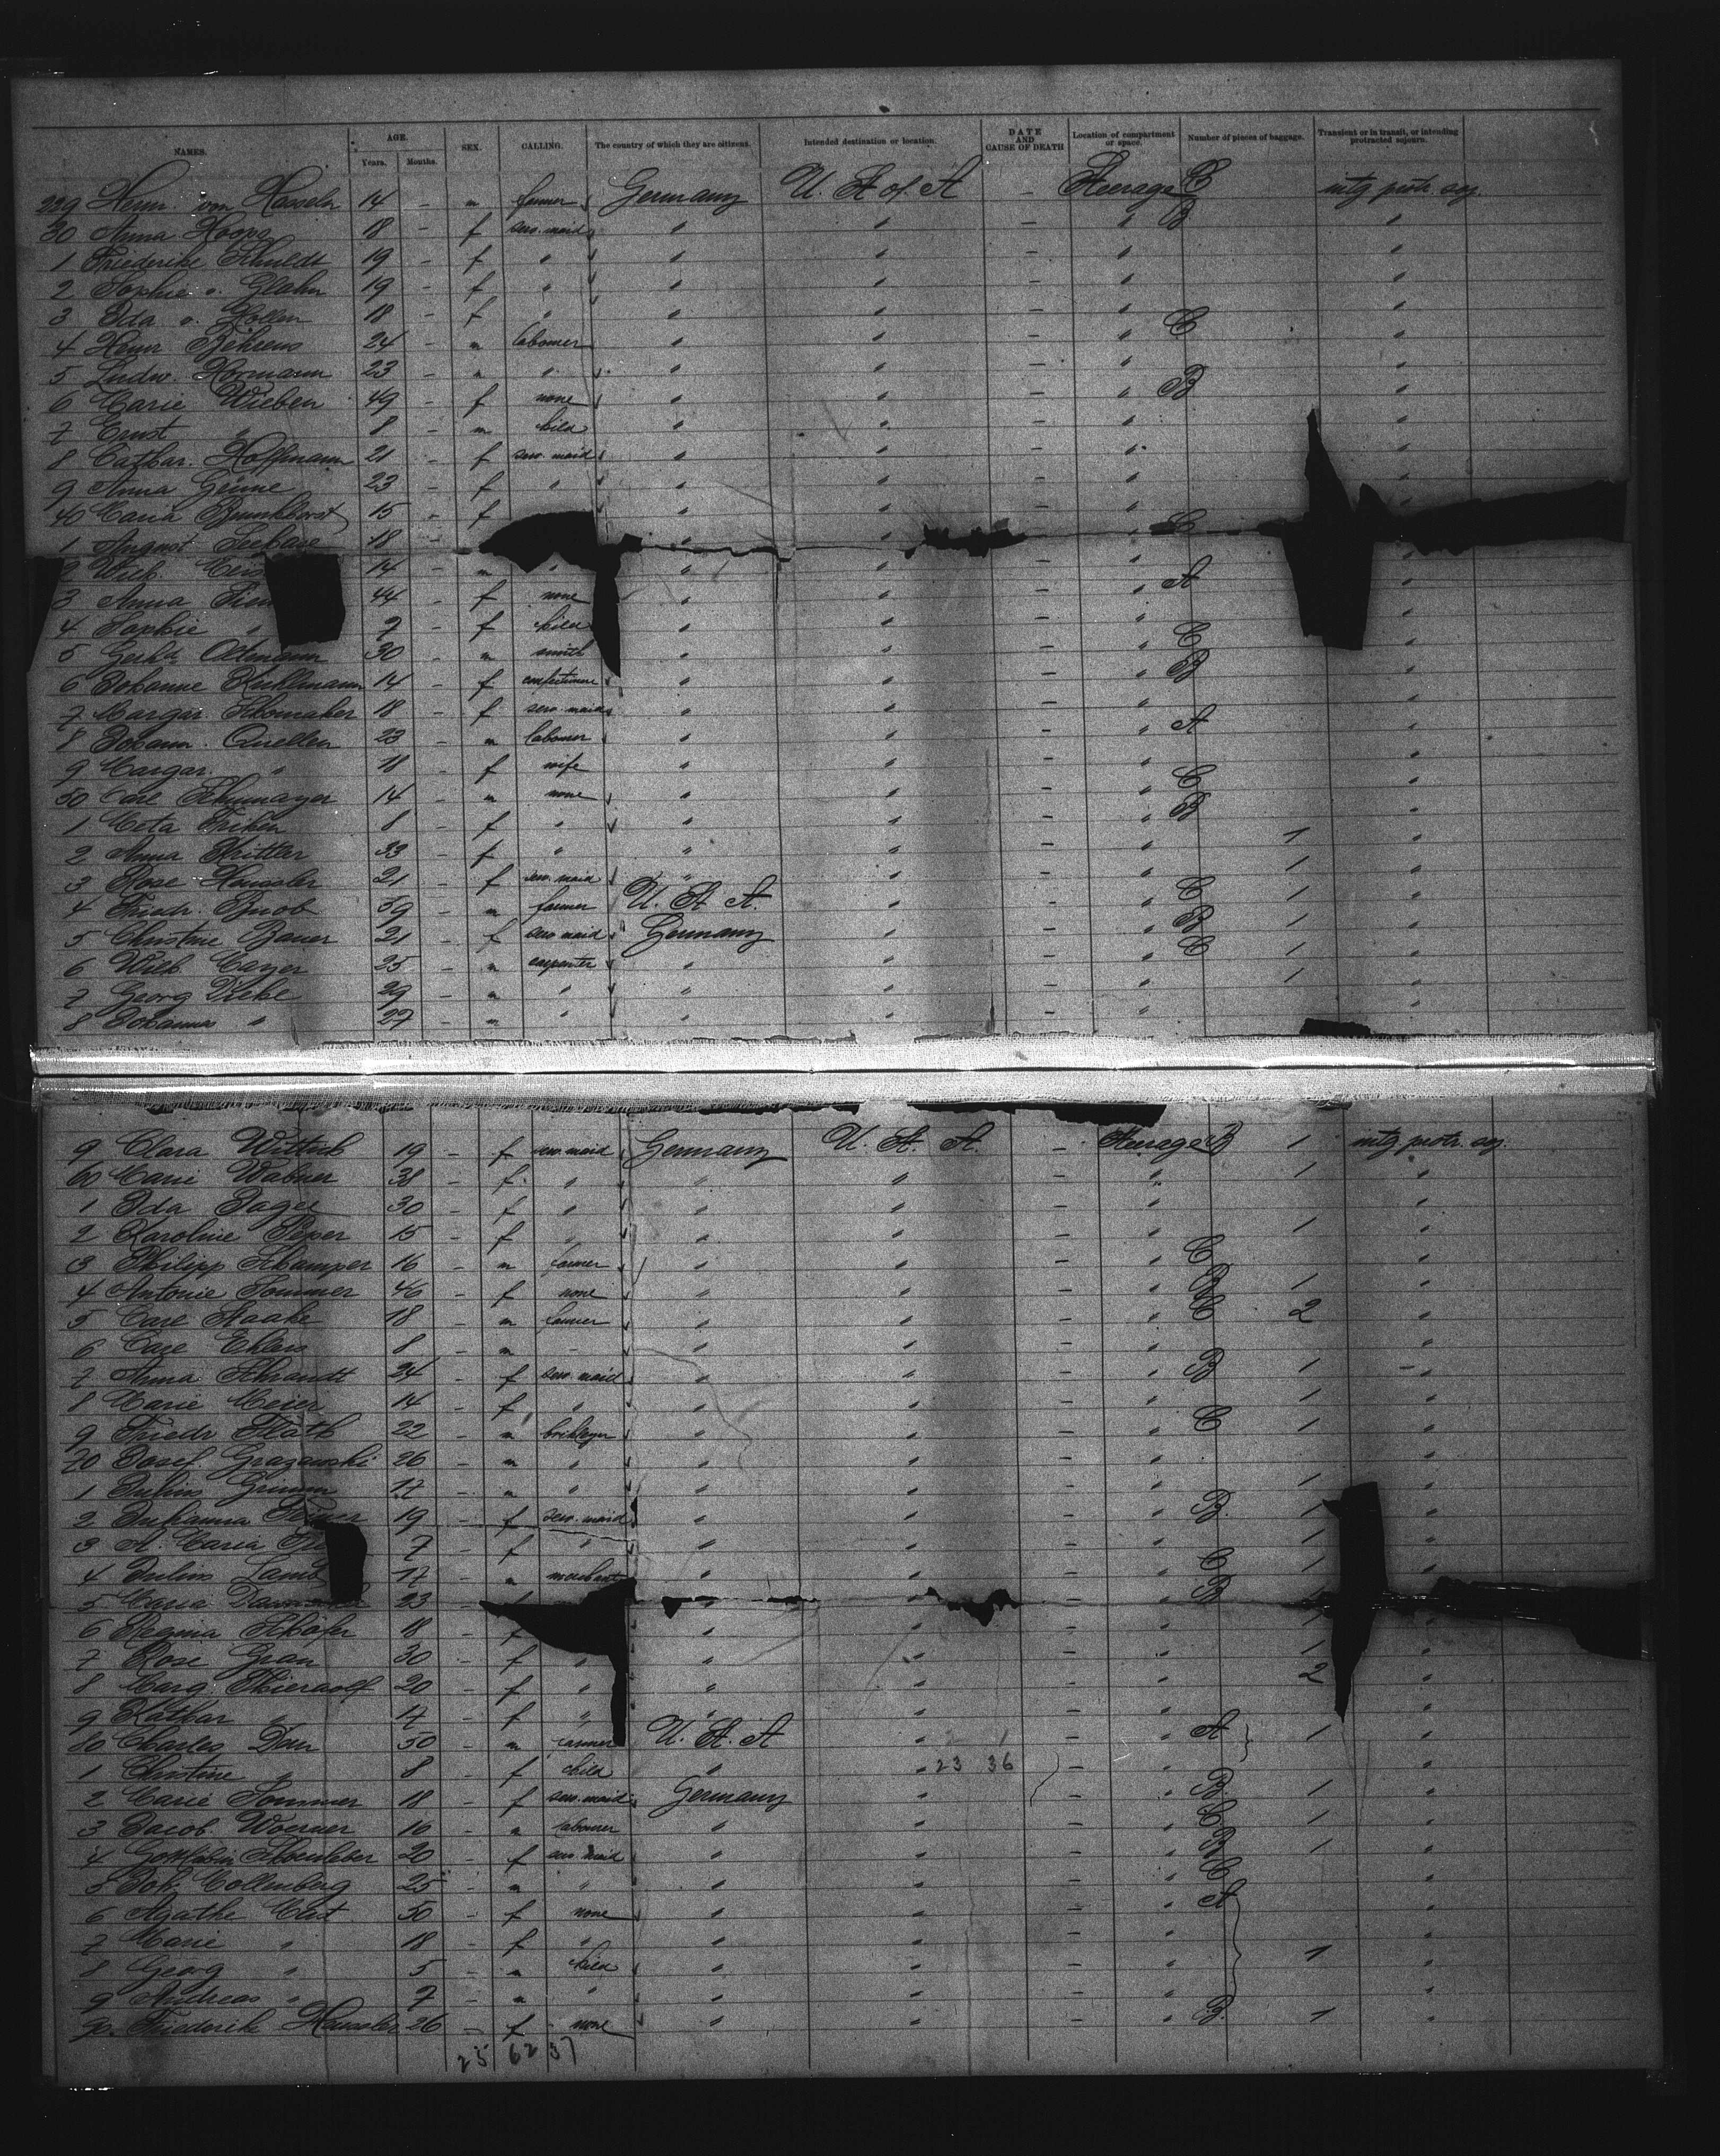 NAMES. AGE. Years. Months. SEX. CALLING. The country of which they are citizens. Intended destination or location. DATE AND CAUSE OF DEATH Location of compartment or space. Number of pieces of baggage. Transient or in transit, or intending protracted sojourn.
229 Herm von Hasseln 14 - m farmer Germany U. St. of A - Steerage C intg protr. soj.
30 Anna Hoops 18 - f serv. maid " " - " B "
1 Friederike Schuldt 19 - f " " " - " "
2 Sophie v. Glahn 19 - f " " " - " "
3 Ida v. Hollen 18 - f " " " - " "
4 Herm Behrens 24 - m labourer " " - " C "
5 Ludw. Hormann 23 - m " " " - " "
6 Marie Wieben 49 - f none " " - " B "
7 Ernst " 8 - m child " " - " "
8 Cathar. Hoffmann 21 - f serv. maid " " - " "
9 Anna 23 - f " " " - " "
40 Maria Brunkhorst 15 - f " " - " "
1 August Seebase 18 - " " C
2 Wilh. 14 - m " " " - " "
3 Anna 44 - f none " " - " A "
4 Sophie " 7 - f child " " - " "
5 Gerh. Oltmann 30 - m smith " " - " C "
6 Johanne Kuhlmann 14 - f " " - " B "
7 Margar. Schomaker 18 - f serv. maid " " - " "
8 Johann Quellen 23 - m labourer " " - " A "
9 Margar. " 18 - f wife " " - " "
50 Carl Schumayer 14 - m none " " - " C "
1 Meta Fricken 8 - f " " " - " B "
2 Anna Kritter 33 - f " " " - " 1 "
3 Rose Haussler 21 - f serv. maid " " - " 1 "
4 Friedr. Buob 59 - m farmer U. St. A. " - " C 1 "
5 Christine Bauer 21 - f serv maid Germany " - " B 1 "
6 Wilh Mayer 25 - m carpenter " " - " C 1 "
7 Georg Diehe 29 - m " " " - " 1 "
8 Johannes " 27 - m " " " - " "
9 Clara Wittich 19 - f serv. maid Germany U. St. A. - Steerage B 1 intg protr. soj.
60 Marie Wabner 38 - f " " " - " 1 "
1 Ida Jager 30 - f " " " - " "
2 Karoline Peper 15 - f " " " - " 1 "
3 Philipp Schamper 16 - m farmer " " - " C "
4 Antonie Sommer 46 - f none " " - " B 1 "
5 Carl Haake 18 - m farmer " " - " C 2 "
6 Carl Ehlers 8 - m - " " - " "
7 Anna Schrandt 24 - f serv. maid " " - " B 1 "
8 Marie Meier 14 - f " " " - " 1 "
9 Friedr Flath 22 - m bricklayer " " - " C 1 "
70 Josef Grazawski 26 - m " " " - " "
1 Julius Grimm 17 - m " " " - " 1 "
2 Johanna 19 - f serv. maid " " - " B. 1 "
3 A. Maria 7 - f " " " - " 1 "
4 Julius Lamb 17 - m merchant " " - " C 1 "
5 Maria 23 - " B
6 Regina Schäfer 18 - f " " - " 1 "
7 Rose Grau 30 - f " " " - " 1 "
8 Marg Thierwolf 20 - f " " " - " 2 "
9 Kathar " 17 - f " " " - " "
80 Charles Dorn 50 - m farmer U. St. A " - " A 1 "
1 Christine " 8 - f child " " 23 36 - " "
2 Marie Sommer 18 - f serv. maid Germany " - " B 1 "
3 Jacob Woerner 16 - m labourer " " - " C 1 "
4 Gottliebin 20 - f serv. maid " " - " B 1 "
5 Joh. Collenberg 25 - m " " " - " C "
6 Agathe Mast 50 - f none " " - " A "
7 Marie " 18 - f " " " - " "
8 Georg " 5 - m child " " - " 1 "
9 Andreas " 7 - m " " " - " "
90. Friederike Haussler 26 - f none " " - " B. 1 "
25 62 37